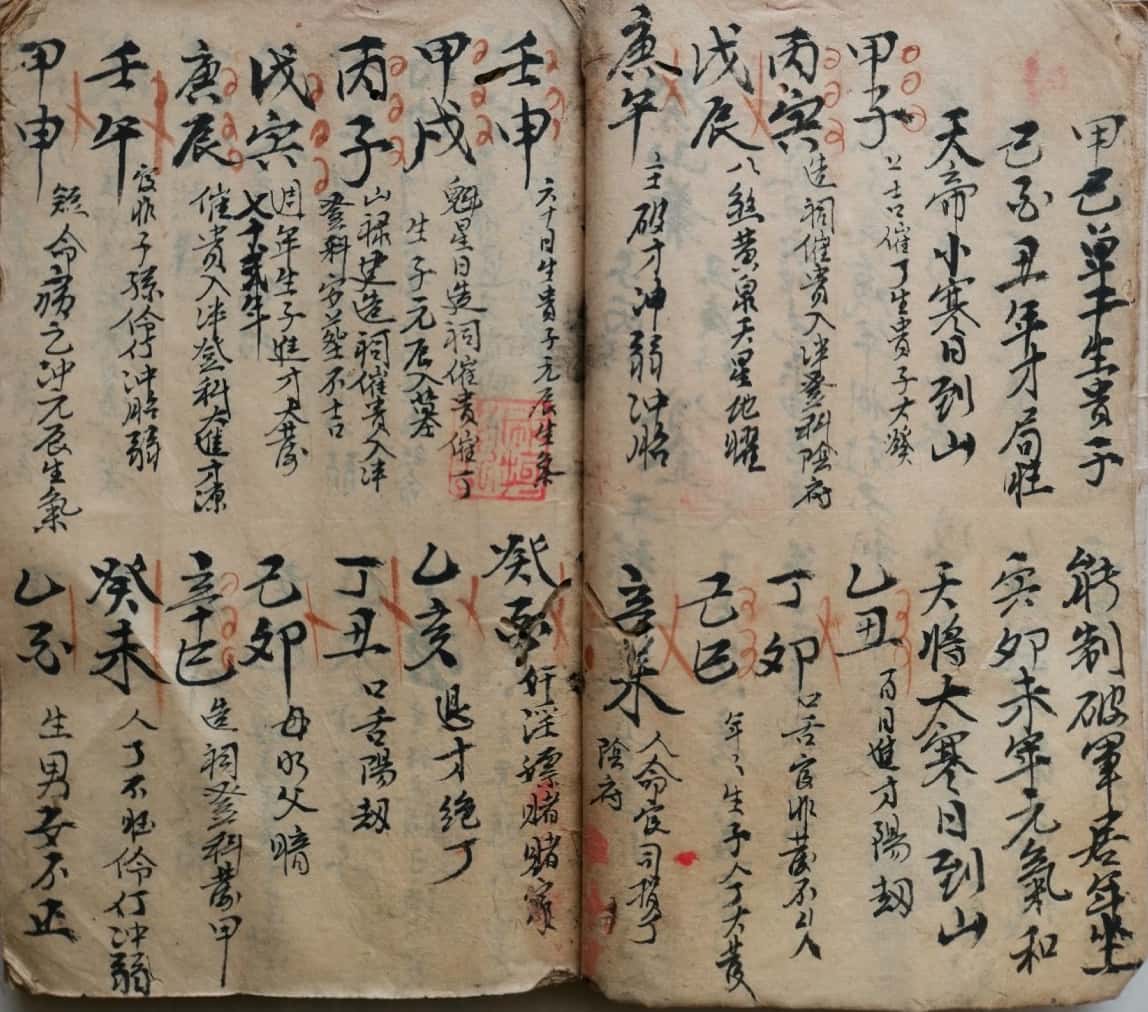 甲己单干生貴子 能制破軍居年坐
己酉丑年才局旺 寅卯未年元氣和
天帝小寒日到山 天將大寒日到山
甲子 上吉催丁生貴子大發
乙丑 百日進才陽刼
丙寅 造祠催貴入泮登科陰府
丁卯 口舌官非發不以人
戊辰 八煞黄泉天星地曜
己巳 年年生子人丁大發
庚午 主破才冲弱冲胎
辛未 人命官司損丁陰府
壬申 六十日生貴子元辰生氣
癸酉 奸淫嫖賭賭家
甲戌 魁星日造祠催貴催丁生子元辰入墓
乙亥 退才絶丁
丙子 山禄史造祠催貴入泮登科安葬不吉
丁丑 口舌陽刼
戊寅 週年生子進才大發七十弍年
己卯 母明父暗
庚辰 催貴入泮登科大進才源
辛巳 造祠登科發甲
壬午 官非子孫伶仃冲胎弱
癸未 人丁不旺伶仃冲弱
甲申 短命痨之冲元辰生氣
乙酉 生男女不正